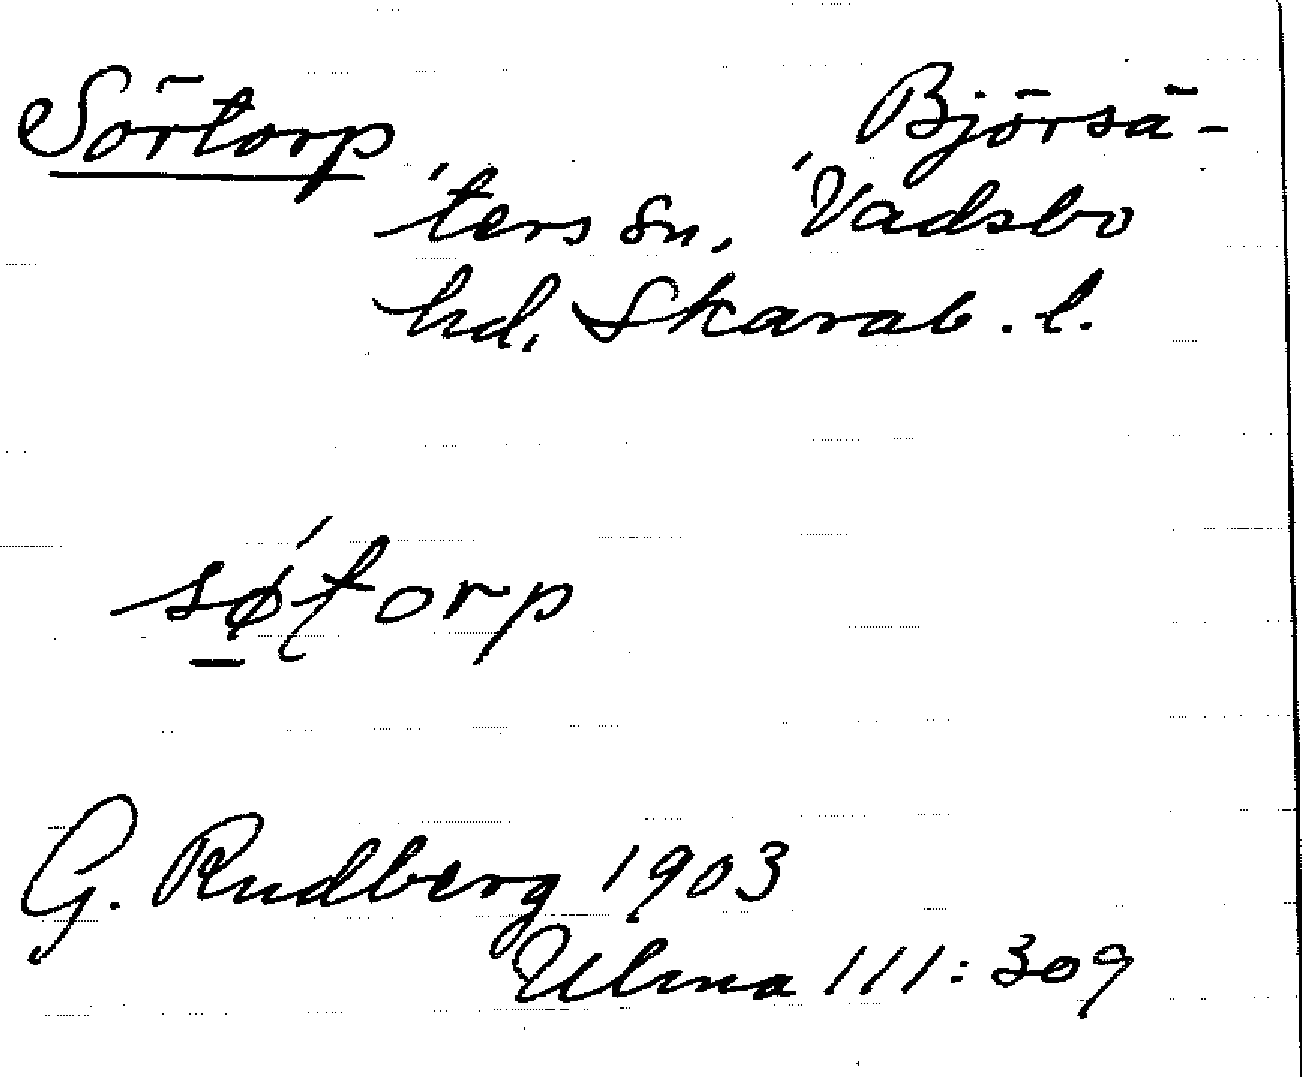 Sörtorp Björsä-
ters sn. Vadsbo
hd. Skarab. l.
sǿ̱torp
G. Rudberg 1903
Ulma 111:309